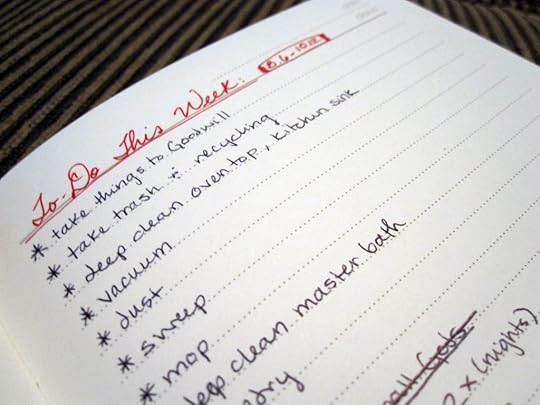 To-Do This Week:
* take things to Goodwill
* take trash & recycling
* deep clean oven top + kitchen sink
* vacuum
* dust
* sweep
* mop
deep clean master bath
dry
Gods
2 x (nights)